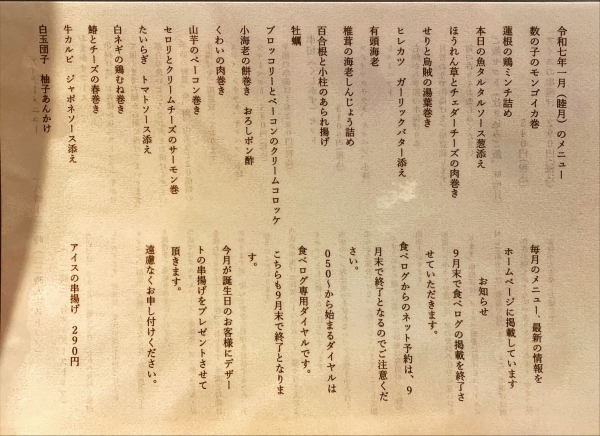 令和七年一月（睦月）のメニュー
数の子のモンゴイカ巻
蓮根の鶏ミンチ詰め
本日の魚タルタルソース葱添え
ほうれん草とチェダーチーズの肉巻き
せりと烏賊の湯葉巻き
ヒレカツ　ガーリックバター添え
有頭海老
椎茸の海老しんじょう詰め
百合根と小柱のあられ揚げ
牡蠣
ブロッコリーとベーコンのクリームコロッケ
小海老の餅巻き　おろしポン酢
くわいの肉巻き
山芋のベーコン巻き
セロリとクリームチーズのサーモン巻
たいらぎ　トマトソース添え
白ネギの鶏むね巻き
鰆とチーズの春巻き
牛カルビ　ジャポネソース添え
白玉団子　柚子あんかけ
毎月のメニュー、最新の情報を
ホームページに掲載しています
お知らせ
９月末で食べログの掲載を終了さ
せていただきます。
食べログからのネット予約は、９
月末で終了となるのでご注意くだ
さい。
０５０～から始まるダイヤルは
食べログ専用ダイヤルです。
こちらも９月末で終了となりま
す。
今月が誕生日のお客様にデザー
トの串揚げをプレゼントさせて
頂きます。
遠慮なくお申し付けください。
アイスの串揚げ　２９０円